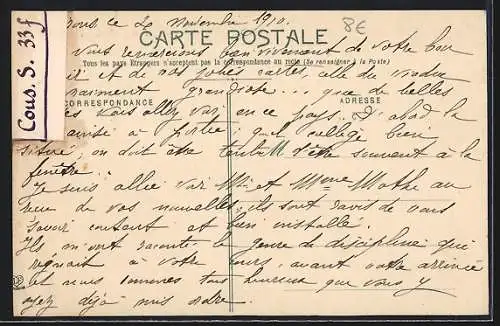 ce 20 novembre 1910.
8€
CARTE POSTALE
Tous les pays Etrangers n'acceptent pas la correspondance au recto (Se renseigner à la Poste)
Cous. S. 33f
Vous remercions bien vivement de votre bon
et de vos jolies cartes, elle du viaduc
vraiment grandiose... que de belles
CORRESPONDANCE
ADRESSE
vous allez voir en ce pays. d'abord la
à portée; quel collège bien
situé, on doit être d'être souvent à la
fenêtre.
Je suis allée voir Mr et Mme Mothe au
reçu de vos nouvelles; ils sont ravis de vous
savoir content et bien installé.
Ils m'ont raconté le genre de discipline qui
régnait à votre cours, avant votre arrivée
et nous sommes tous heureux que vous y
ayez déjà mis ordre.